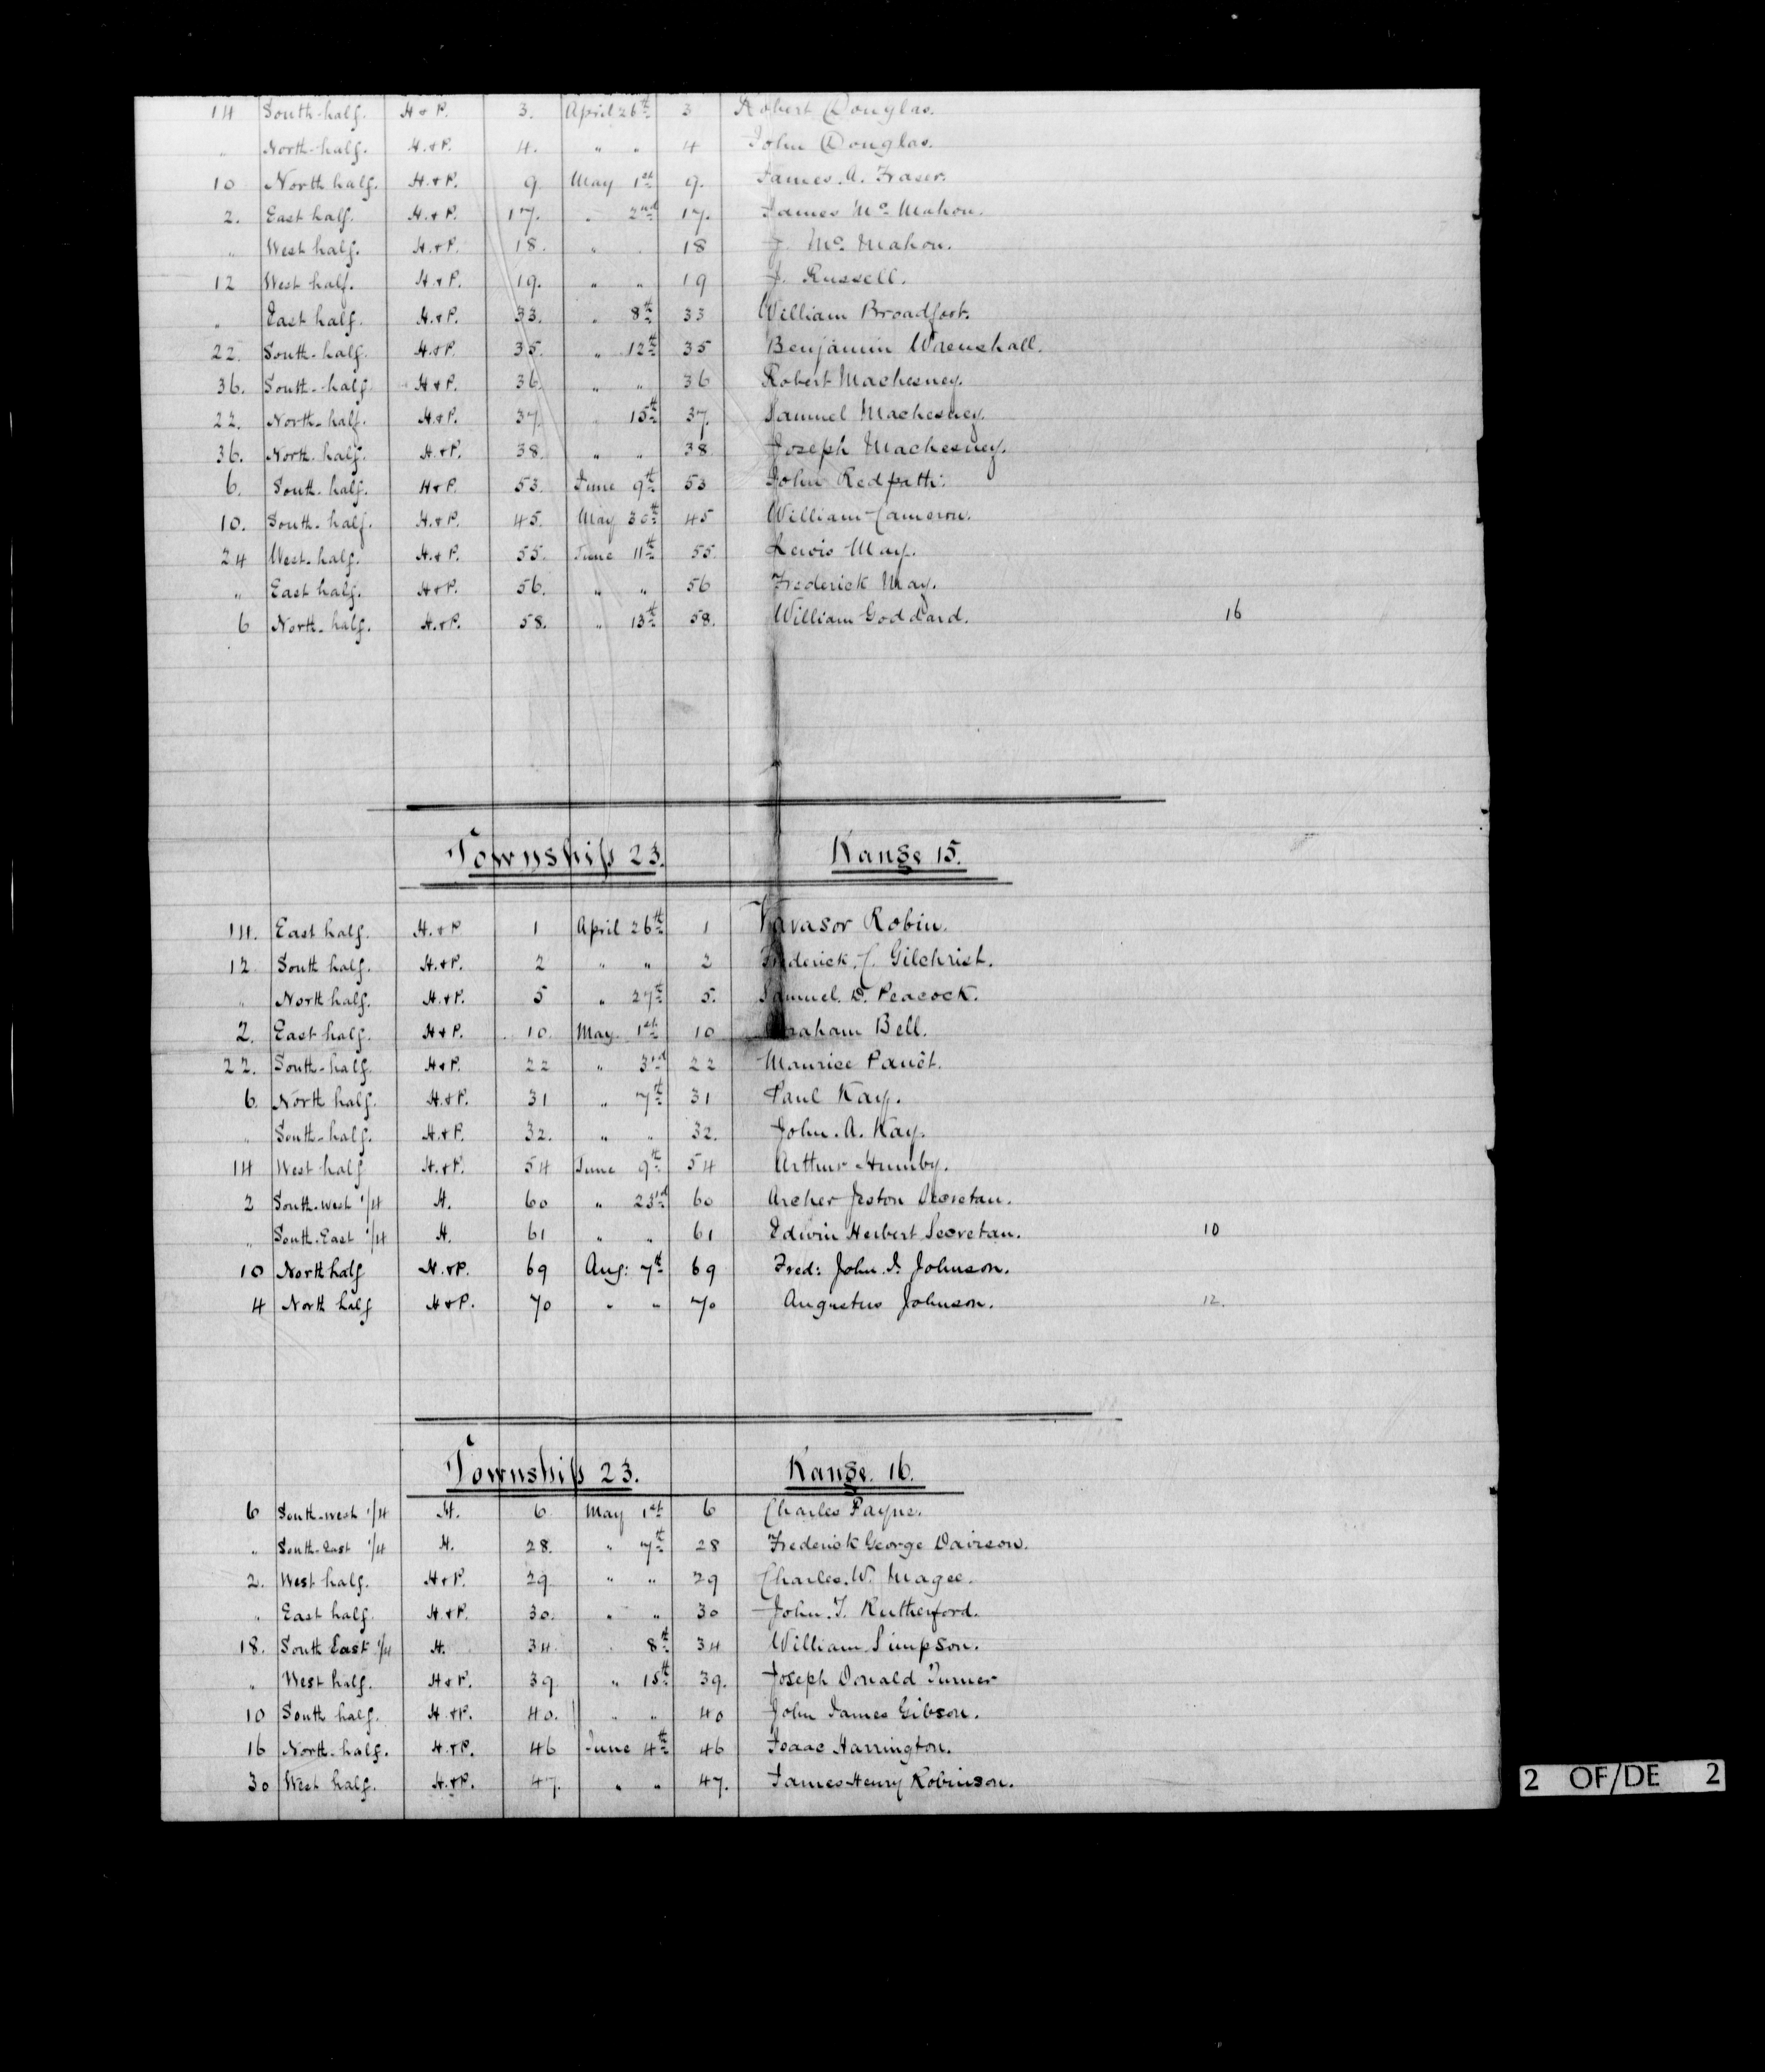 14 South-half. H & P. 3. April 26th 3 Robert Douglas.
" North-half. H. & P. 4. " " 4 John Douglas.
10 North half. H. & P. 9. May 1st 9. James. A. Fraser.
2. East half. H. & P. 17. " 2nd 17. James Mc Mahon.
" West half. H. & P. 18. " " 18 J. Mc Mahon.
12 West half. H. & P. 19. " " 19 J. Russell.
" East half. H. & P. 33. " 8th 33 William Broadfoot.
22. South-half. H. & P. 35. " 12th 35 Benjamin Wrenshall.
36. South-half H. & P. 36. " " 36 Robert Machesney.
22. North-half. H. & P. 37. " 15th 37. Samuel Machesney.
36. North-half. H. & P. 38. " " 38 Joseph Machesney.
6. South-half. H & P. 53. June 9th 53 John Redpath.
10. South-half. H. & P. 45. May 30th 45 William Cameron.
24 West-half. H. & P. 55. June 11th 55. Lewis May.
" East half. H & P. 56. " " 56 Frederick May.
6 North-half. H. & P. 58. " 13th 58. William Goddard. 16
Township 23. Range 15.
14. East half. H. & P 1 April 26th 1 Vavasor Robin.
12 South half. H. & P. 2 " " 2 Frederick. C. Gilchrist.
" North half. H. & P. 5 " 27th 5. Samuel. D. Peacock.
2. East half. H & P. 10. May 1st 10 Graham Bell.
22. South-half. H & P. 22 " 3rd 22 Maurice Panêt.
6. North half. H. & P. 31 " 7th 31 Paul Kay.
" South-half. H. & P. 32. " " 32. John. A. Kay.
14 West half H. & P. 54 June 9th 54 Arthur Humby.
2 South-West 1/4 H. 60 " 23rd 60 Archer Jeston Secretan.
" South-East 1/4 H. 61 " " 61 Edwin Herbert Secretan. 10
10 North half H. & P. 69 Aug: 7th 69 Fred: John. I. Johnson.
4 North half H & P. 70 " " 70 Augustus Johnson. 12.
Township 23. Range. 16.
6 South-west 1/4 H. 6 May 1st 6 Charles Payne.
" South-East 1/4 H. 28. " 7th 28 Frederick George Davison.
2. West half. H & P. 29 " " 29 Charles. W. Magee.
" East half. H. & P. 30. " " 30 John. T. Rutherford.
18. South East 1/4 H. 34. " 8th 34 William Simpson.
" West half. H & P. 39. " 15th 39. Joseph Donald Turner
10 South half. H. & P. 40. " " 40 John James Gibson.
16 North-half. H. & P. 46 June 4th 46 Isaac Harrington.
30 West half. H. & P. 47. " " 47. James Henry Robinson.
2 OF/DE 2